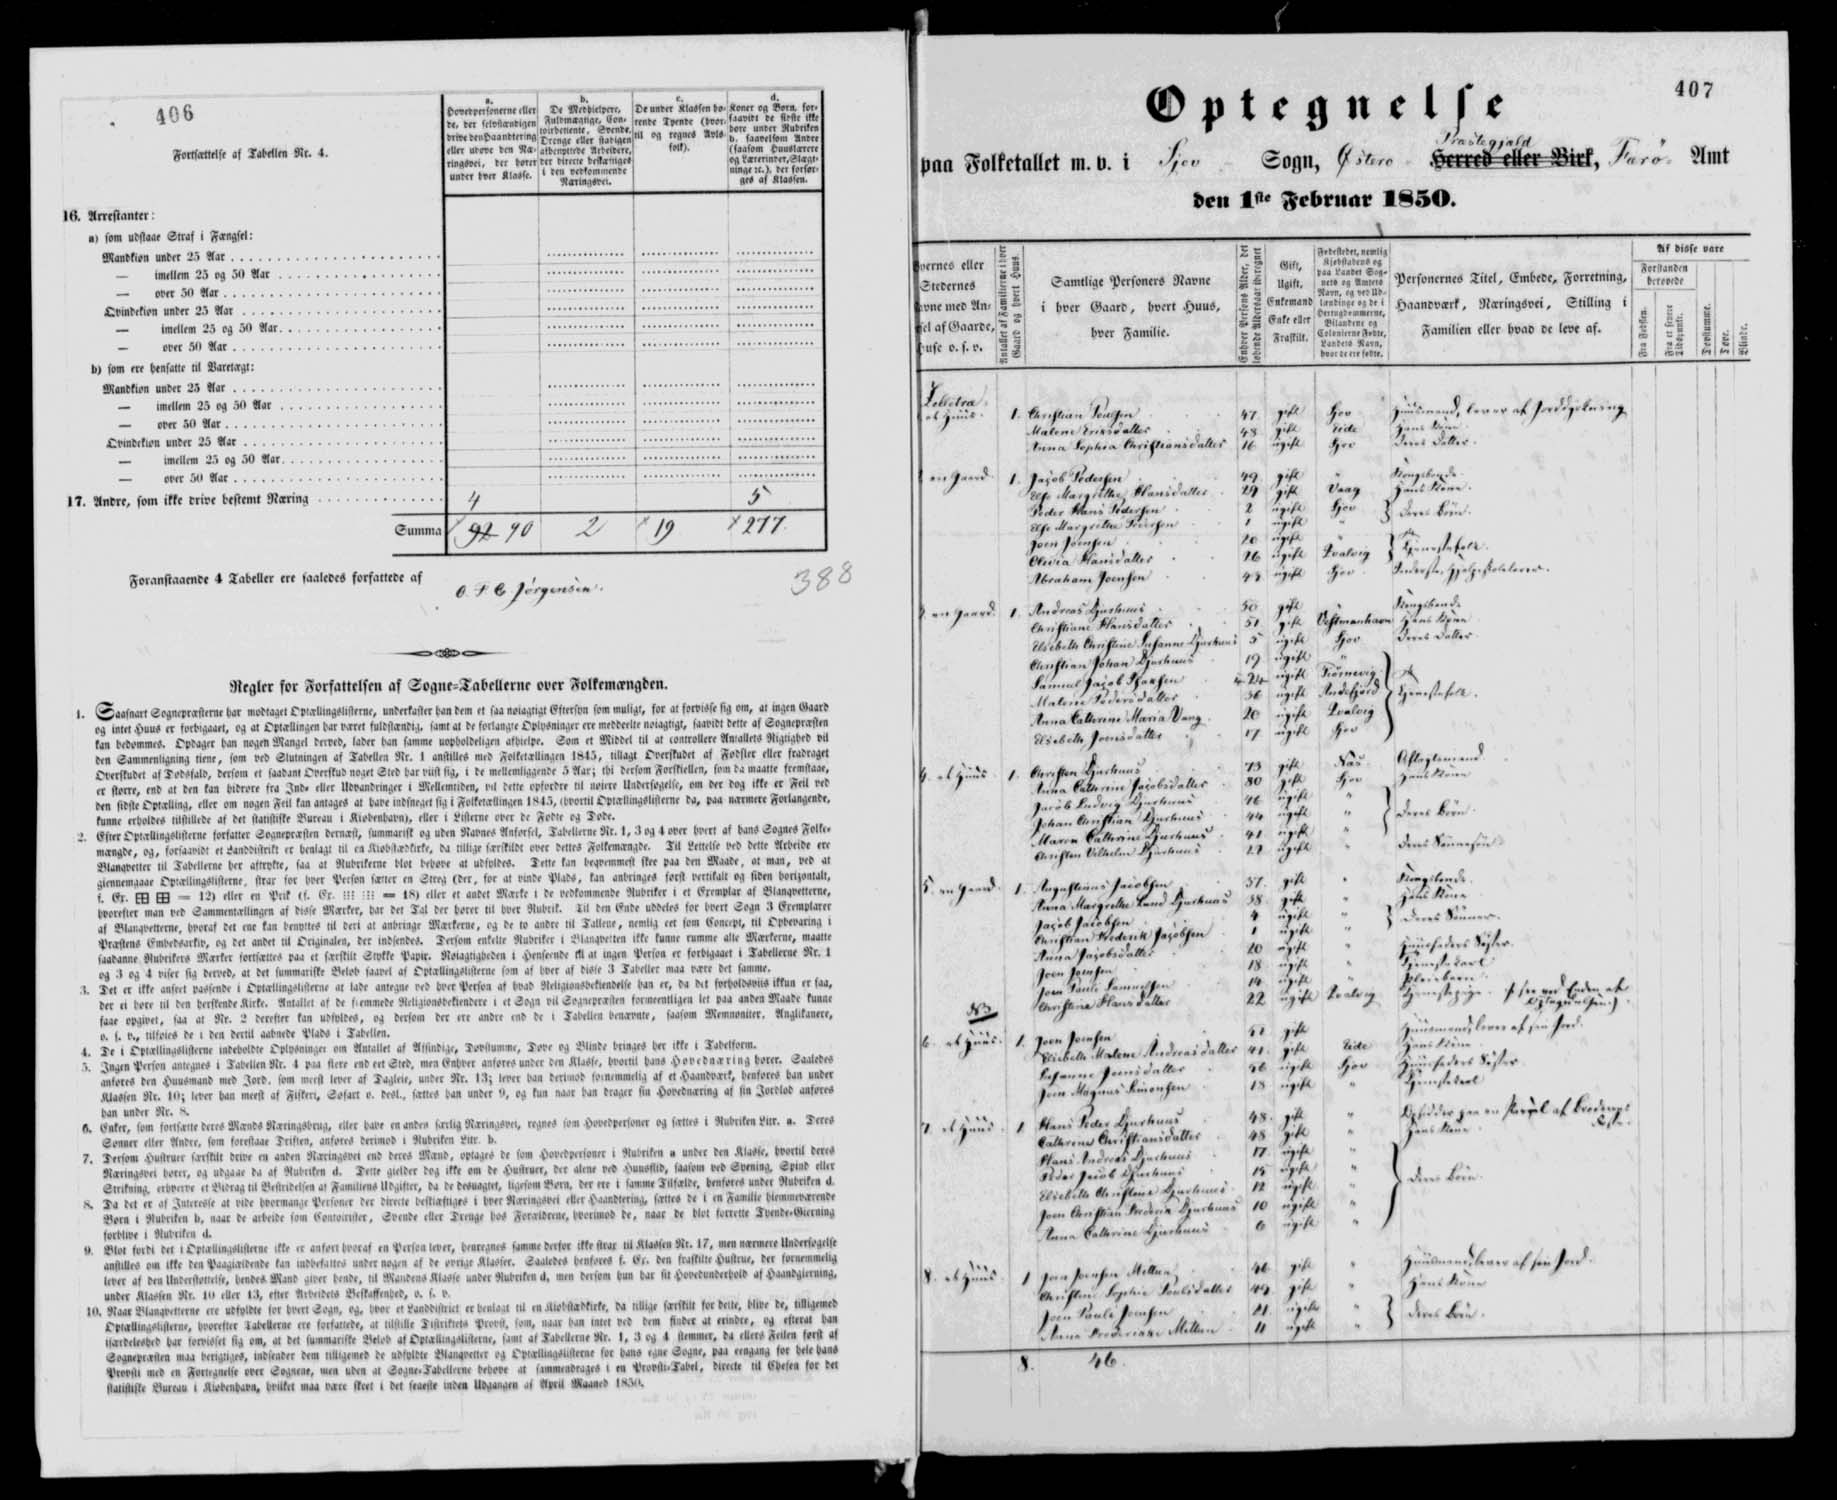 406
Fortsættelse af Tabellen Nr. 4.
a.
Hovedpersonerne eller
de, der selvstændigen
drive den Haandtering
eller udøve den Næ-
ringsvei, der hører
under hver Klasse.
b.
De Medhjelpere,
Fuldmægtige, Con-
toirbetiente, Svende,
Drenge eller stadigen
afbenyttede Arbeidere,
der directe beskæftiges
i den vedkommende
Næringsvei.
c.
De under Klassen ho-
rende Tyende (hvor-
til og regnes Avls-
folk).
d.
Koner og Børn, for-
saavidt de sidste ikke
høre under Rubriken
b, saavelsom Andre
(saasom Huuslærere
og Lærerinder, Slægt-
ninge ɪc.), der forsør-
ges af Klassen.
16. Arrestanter:
a) som udstaae Straf i Fængsel:
Mandkiøn under 25 Aar
— imellem 25 og 50 Aar
— over 50 Aar
Qvindekiøn under 25 Aar
— imellem 25 og 50 Aar
— over 50 Aar
b) som ere hensatte til Varetægt:
Mandkiøn under 25 Aar
— imellem 25 og 50 Aar
— over 50 Aar
Qvindekiøn under 25 Aar
— imellem 25 og 50 Aar
— over 50 Aar
17. Andre, som ikke drive bestemt Næring 4 5
Summa 92 90 2 19 277.
Foranstaaende 4 Tabeller ere saaledes forfattede af
O. F. C. Jørgensen.
388
Regler for Forfattelsen af Sogne-Tabellerne over Folkemængden.
1. Saasnart Sognepræsterne har modtaget Optællingslisterne, underkaster han dem et saa nøiagtigt Eftersyn som muligt, for at forvisse sig om, at ingen Gaard
og intet Huus er forbigaaet, og at Optællingen har været fuldstændig, samt at de forlangte Oplysninger ere meddeelte nøiagtigt, saavidt dette af Sognepræsten
kan bedømmes. Opdager han nogen Mangel derved, lader han samme uopholdeligen afhielpe. Som et Middel til at controllere Antallets Rigtighed vil
den Sammenligning tiene, som ved Slutningen af Tabellen Nr. 1 anstilles med Folketællingen 1845, tillagt Overskudet af Fødsler eller fradraget
Overskudet af Dødsfald, dersom et saadant Overskud noget Sted har viist sig, i de mellemliggende 5 Aar; thi dersom Forskiellen, som da maatte fremstaae,
er større, end at den kan hidrøre fra Ind- eller Udvandringer i Mellemtiden, vil dette opfordre til nøiere Undersøgelse, om der dog ikke er Feil ved
den sidste Optælling, eller om nogen Feil kan antages at have indsneget sig i Folketællingen 1845, (hvortil Optællingslisterne da, paa nærmere Forlangende,
kunne erholdes tilstillede af det statistiske Bureau i Kiøbenhavn), eller i Listerne over de Fødte og Døde.
2. Efter Optællingslisterne forfatter Sognepræsten dernæst, summarisk og uden Navnes Anførsel, Tabellerne Nr. 1, 3 og 4 over hvert af hans Sognes Folke-
mængde, og, forsaavidt et Landdistrikt er henlagt til en Kiøbstædkirke, da tillige særskildt over dettes Folkemængde. Til Lettelse ved dette Arbeide ere
Blanqvetter til Tabellerne her aftrykte, saa at Rubrikerne blot behøve at udfyldes. Dette kan beqvemmest skee paa den Maade, at man, ved at
giennemgaae Optællingslisterne, strax for hver Person sætter en Streg (der, for at vinde Plads, kan anbringes først vertikalt og siden horizontalt,
f. Ex. = 12) eller en Prik (f. Ex. = 18) eller et andet Mærke i de vedkommende Rubriker i et Exemplar af Blanqvetterne,
hvorefter man ved Sammentællingen af disse Mærker, har det Tal der hører til hver Rubrik. Til den Ende uddeles for hvert Sogn 3 Exemplarer
af Blanqvetterne, hvoraf det ene kan benyttes til deri at anbringe Mærkerne, og de to andre til Tallene, nemlig eet som Concept, til Opbevaring i
Præstens Embedsarkiv, og det andet til Originalen, der indsendes. Dersom enkelte Rubriker i Blanqvetten ikke kunne rumme alle Mærkerne, maatte
saadanne Rubrikers Mærker fortsættes paa et særskilt Stykke Papir. Nøiagtigheden i Henseende til at ingen Person er forbigaaet i Tabellerne Nr. 1
og 3 og 4 viser sig derved, at det summariske Beløb saavel af Optællingslisterne som af hver af disse 3 Tabeller maa være det samme.
3. Det er ikke anseet passende i Optællingslisterne at lade antegne ved hver Person af hvad Religionsbekiendelse han er, da det forholdsviis ikkun er faa,
der ei høre til den herskende Kirke. Antallet af de fremmede Religionsbekiendere i et Sogn vil Sognepræsten formeentligen let paa anden Maade kunne
faae opgivet, saa at Nr. 2 derefter kan udfyldes, og dersom der ere andre end de i Tabellen benævnte, saasom Memnoniter, Anglikanere,
o. s. v., tilføies de i den dertil aabnede Plads i Tabellen.
4. De i Optællingslisterne indeholdte Oplysninger om Antallet af Afsindige, Døvstumme, Døve og Blinde bringes her ikke i Tabelform.
5. Ingen Person antegnes i Tabellen Nr. 4 paa flere end eet Sted, men Enhver anføres under den Klasse, hvortil hans Hovednæring hører. Saaledes
anføres den Huusmand med Jord, som meest lever af Dagleie, under Nr. 13; lever han derimod fornemmelig af et Haandværk, henføres han under
Klassen Nr. 10; lever han meest af Fiskeri, Søfart o. desl., sættes han under 9, og kun naar han drager sin Hovednæring af sin Jordlod anføres
han under Nr. 8.
6. Enker, som fortsætte deres Mænds Næringsbrug, eller have en anden særlig Næringsvei, regnes som Hovedpersoner og sættes i Rubriken Litr. a. Deres
Sønner eller Andre, som forestaae Driften, anføres derimod i Rubriken Litr. b.
7. Dersom Hustruer særskilt drive en anden Næringsvei end deres Mænd, optages de som Hovedpersoner i Rubriken a under den Klasse, hvortil deres
Næringsvei hører, og udgaae da af Rubriken d. Dette gielder dog ikke om de Hustruer, der alene ved Huusflid, saasom ved Syening, Spind eller
Strikning, erhverve et Bidrag til Bestridelsen af Familiens Udgifter, da de desuagtet, ligesom Børn, der ere i samme Tilfælde, henføres under Rubriken d.
8. Da det er af Interesse at vide hvormange Personer der directe beskiæftiges i hver Næringsvei eller Haandtering, sættes de i en Familie hiemmeværende
Børn i Rubriken b, naar de arbeide som Contoirister, Svende eller Drenge hos Forældrene, hvorimod de, naar de blot forrette Tyende-Gierning
forblive i Rubriken d.
9. Blot fordi det i Optællingslisterne ikke er anført hvoraf en Person lever, henregnes samme derfor ikke strax til Klassen Nr. 17, men nærmere Undersøgelse
anstilles om ikke den Paagiældende kan indbefattes under nogen af de øvrige Klasser. Saaledes henføres f. Ex. den fraskilte Hustrue, der fornemmelig
lever af den Understøttelse, hendes Mand giver hende, til Mandens Klasse under Rubriken d, men dersom hun har sit Hovedunderhold af Haandgierning,
under Klassen Nr. 10 eller 13, efter Arbeidets Beskaffenhed, o. s. v.
10. Naar Blanqvetterne ere udfyldte for hvert Sogn, og, hvor et Landdistrict er henlagt til en Kiøbstædkirke, da tillige særskilt for dette, blive de, tilligemed
Optællingslisterne, hvorefter Tabellerne ere forfattede, at tilstille Districtets Provst, som, naar han intet ved dem finder at erindre, og efterat han
isærdeleshed har forvisset sig om, at det summariske Beløb af Optællingslisterne, samt af Tabellerne Nr. 1, 3 og 4 stemmer, da ellers Feilen først af
Sognepræsten maa berigtiges, indsender dem tilligemed de udfyldte Blanqvetter og Optællingslisterne for hans egne Sogne, paa eengang for hele hans
Provsti med en Fortegnelse over Sognene, men uden at Sogne-Tabellerne behøve at sammendrages i en Provsti-Tabel, directe til Chefen for det
statistiske Bureau i Kiøbenhavn, hvilket maa være skeet i det seneste inden Udgangen af April Maaned 1850.
407
Optegnelse
paa Folketallet m. v. i Gjov Sogn, Østerø Præstegjæld Herred eller Birk, Færø Amt
den 1ste Februar 1850.
Samtlige Personers Navne
i hver Gaard, hvert Huus,
hver Familie.
Gift,
Ugift,
Enkemand
Enke eller
Fraskilt.
Fødestedet, nemlig
Kjøbstadens og
paa Landet Sog-
nets og Amtets
Navn, og ved Ud-
lændinge og de i
Hertugdømmerne,
Bilandene og
Colonierne Fødte,
Landets Navn,
hvor de ere fødte.
Personernes Titel, Embede, Forretning,
Haandværk, Næringsvei, Stilling i
Familien eller hvad de leve af.
Af disse vare
Forstanden
berøvede
Fra Fødslen.
Fra et senere
Tidspunkt.
Døvstumme.
Døve.
Blinde.
et Huus. 1. Christian Poulsen 47 gift Gjov Huusmand, lever af Jorddyrkning
Malene Eriksdatter 48 gift Eide Hans Kone
Anna Sophia Christiansdatter 16 ugift Gjov Deres Datter.
en Gaard. 1. Jacob Pedersen 49 gift " Kongsbonde.
Else Margrethe Hansdatter 29 gift Vaag Hans Kone.
Peder Hans Pedersen 2 ugift Gjov } Deres Børn.
Else Margrethe Pedersen 1 ugift "
Joen Joensen 20 ugift " } Tjenestefolk.
Olivia Hansdatter 26 ugift Qvalvig
Abraham Joensen ugift Gjov
en Gaard. 1. Andreas Djurhuus 50 gift " Kongsbonde
Christiane Hansdatter 51 gift Vestmanhavn Hans Kone
Elsebeth Christine Susanne Djurhuus 5 ugift Gjov Deres Datter
Christian Johan Djurhuus 19 ugift "
Samuel Jacob 24 ugift Tjørnevig
Malene Pedersdatter 36 ugift Andefjord } Tjenestefolk.
Anna Cathrine Maria Vang 20 ugift Qvalvig
Elsebeth Joensdatter 17 ugift Gjov
4. et Huus. 1. Christen Djurhuus 73 gift Næs Aftægtsmand.
Anna Cathrine Jacobsdatter 80 gift Gjov Hans Kone
Jacob Ludvig Djurhuus 46 ugift "
Johan Christian Djurhuus 44 ugift " } Deres Børn
Maren Cathrine Djurhuus 41 ugift "
Christen Vilhelm Djurhuus ugift " Deres Sønnesøn
5. en Gaard. 1. Augustinus Jacobsen 37. gift " Kongsbonde.
Anna Margrethe Lund Djurhuus 38 gift " Hans Kone
Jacob Jacobsen 4 ugift " } Deres Sønner.
Christian Frederik Jacobsen 1 ugift "
Anna Jacobsdatter 20 ugift " Huusfaders Søster.
Joen Joensen 18 ugift " Tjenestekarl
Joen Pauli Samuelsen 14 ugift " Pleiebarn.
Christine Hansdatter 22 ugift Qvalvig Tjenestepige.
NB
6. et Huus. 1. Joen Joensen 51 gift Huusmand, lever af sin Jord.
Elsebeth Malene Andreasdatter 41. gift Eide Hans Kone
Susanne Joensdatter 46 ugift Gjov Huusfaders Søster
Joen Magnus Simonsen 18 ugift " Tjenestekarl
7. et Huus 1 Hans Peder Djurhuus 48. gift "
Cathrine Christiansdatter 48 gift " Hans Kone
Hans Andreas Djurhuus 17 ugift "
Peder Jacob Djurhuus 15 ugift "
Elsebeth Christine Djurhuus 12 ugift " } Deres Børn.
Joen Christian Frederik Djurhuus 10 ugift "
Anna Cathrine Djurhuus 6 ugift "
8. et Huus 1 Joen Joensen Mellum 46 gift " Huusmand, lever af sin Jord.
Christine Sophie Poulsdatter 49. gift " Hans Kone
Joen Pauli Joensen 21. ugift " } Deres Børn.
Anna Frederikke Mellum 11 ugift "
8. 46.